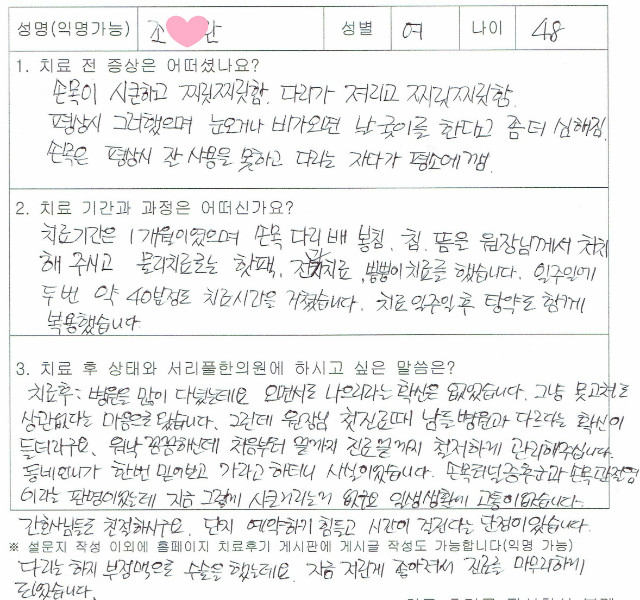 성명(익명가능) 조 란 성별 여 나이 48
1. 치료 전 증상은 어떠셨나요?
손목이 시큰하고 찌릿찌릿함. 다리가 저리고 찌릿찌릿함.
평상시 그러했으며 눈오거나 비가오면 날궂이를 한다고 좀더 심해짐.
손목은 평상시 잘 사용을 못하고 다리는 자다가 평소에 깸.
2. 치료 기간과 과정은 어떠신가요?
치료기간은 1개월이였으며 손목 다리 배 봉침. 침. 뜸은 원장님께서 처치
해 주시고 물리치료로는 핫팩, 치료, 뿅뿅이치료를 했습니다. 일주일에
두번 약 40분정도 치료시간을 거쳤습니다. 치료 일주일후 탕약도 함께
복용했습니다.
3. 치료 후 상태와 서리풀한의원에 하시고 싶은 말씀은?
치료후: 병원을 많이 다녔는데요 오면서로 나으리라는 확신은 없었습니다. 그냥 못고쳐도
상관없다는 마음으로 왔습니다. 그런데 원장님 첫진료때 남들병원과 다르다는 확신이
들더라구요. 워낙 꼼꼼하신데 처음부터 끝까지 진료끝까지 철저하게 관리해주십니다.
동네언니가 한번 믿어보고 가라고 하더니 사실이었습니다. 손목터널증후군과 손목관절염
이라는 판명이었는데 지금 그렇게 시큰거리는거 없구요 일상생활에 고통이 없습니다.
간호사님들도 친절하시구요. 단지 예약하기 힘들고 시간이 걸린다는 단점이 있습니다.
※ 설문지 작성 이외에 홈페이지 치료후기 게시판에 게시글 작성도 가능합니다(익명 가능)
다리는 하지 부정맥으로 수술을 했는데요. 지금 저린게 좋아져서 진료를 마무리하게
되었습니다.